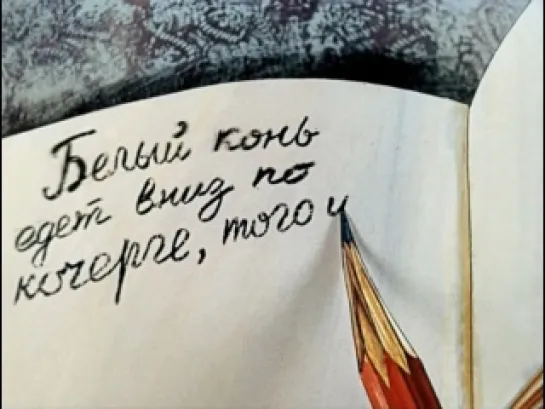 Белый конь
едет вниз по
кочерге, того и